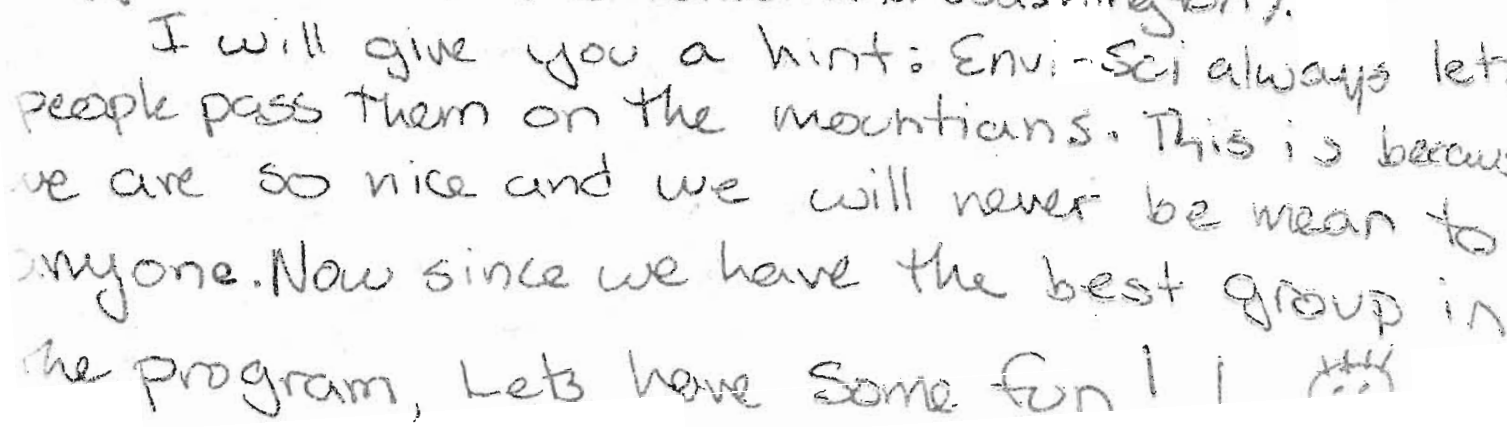 I will give you a hint: Envi-Sci always let
people pass them on the mountians. This is becaus
we are so nice and we will never be mean to
anyone. Now since we have the best group in
the program, Lets have some fun! !